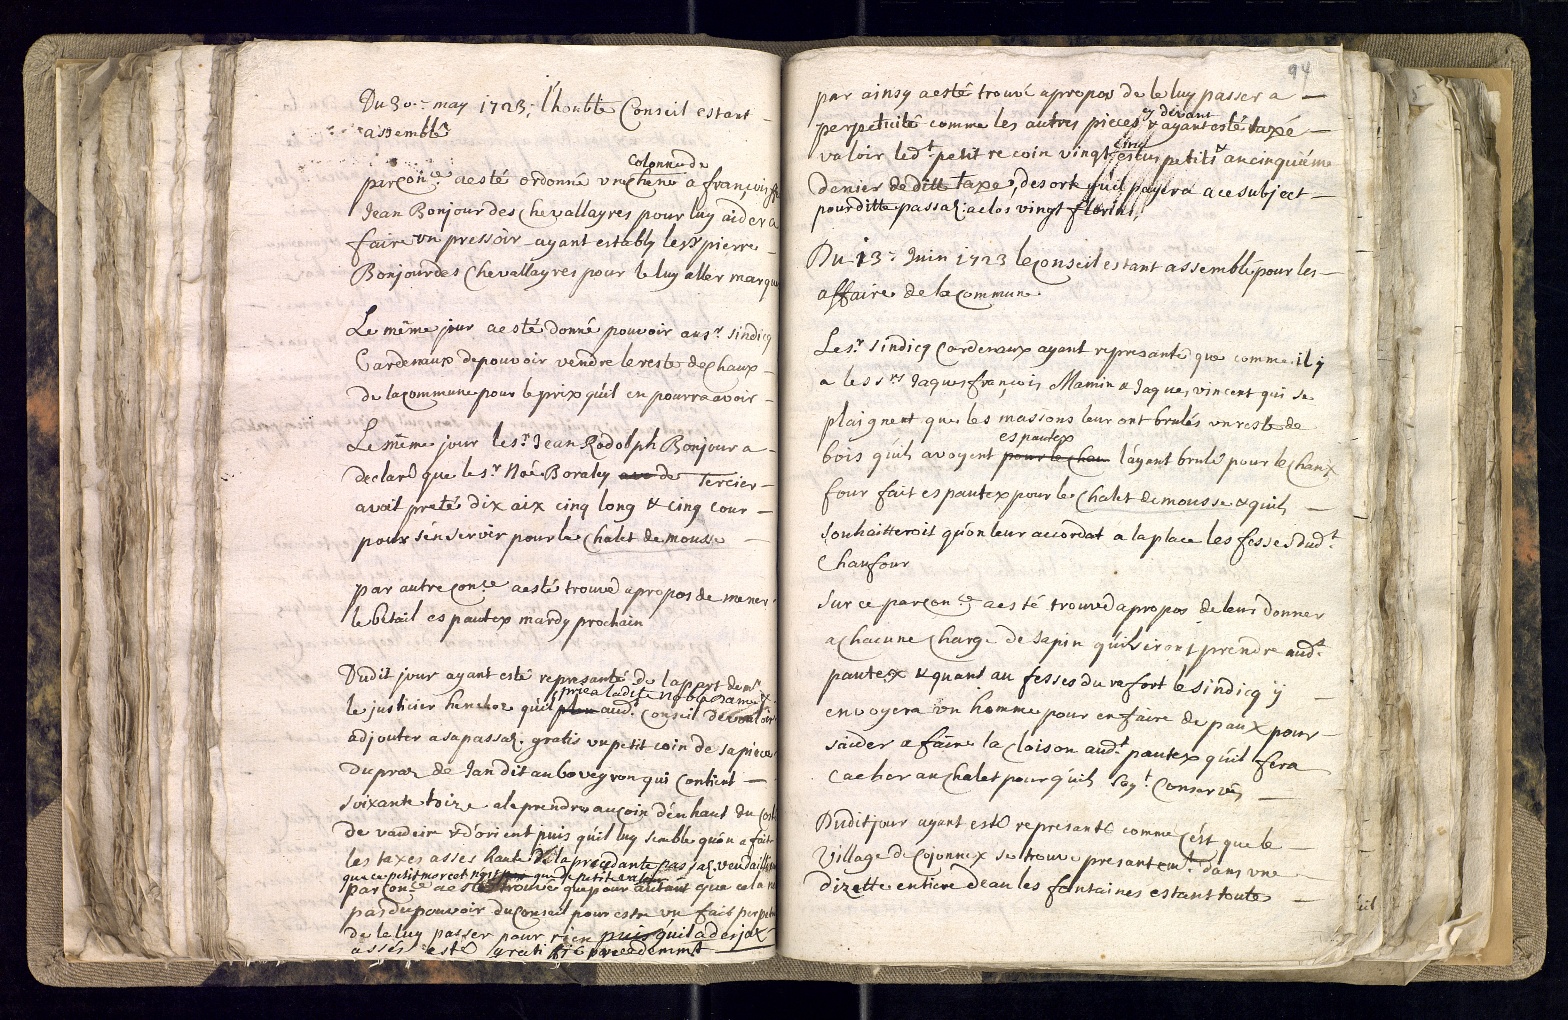 Du 30.e may 1723, l'honble Conseil estant
assemblé
colonne de
par çon.ce a esté ordonné un chene a françois ffeu
Jean Bonjour des Chevallayres pour luy aider a
faire un pressoir ayant estably le sr pierre
Bonjour des Chevallayres pour le luy aller marquer
Le même jour a esté donné pouvoir au sr. sindicq
Cardenaux de pouvoir vendre le reste de chaux
de la commune pour le prix quil en pourra avoir
Le même jour le sr. Jean Rodolph Bonjour a
declaré que le sr Noé Boraley de Tercier
avoit preté dix aix cinq long & cinq cour
pour s'en servir pour le Chalet de mousse
par autre çon.ce a esté trouvé apropos de mener
le bétail es pautex mardy prochain
Dudit jour ayant esté representé de la part de mr
priea ladite noble Dame
le justicier quil aud.t Conseil de vouloir
adjouter a sa passaõ. gratis un petit coin de sa piece
du praz de Jan dit au boveyron qui contient
soixante toize a le prendre au coin d'enhaut du costé
de vaudeir & d'orient puis quil luy semble qu'on a fait
les taxes asses haute de la precedante
que ce petit morcet
par çon.ce a esté trouvé que pour autant que cela n'a
pas du pouvoir du Conseil pour estre un fait perpetu
de le luy passer pour rien puis quil a desjax
assés esté gratifié precedemmt
94
par ainsy a esté trouvé apropos de le luy passer a
perpetuité comme les autres pieces cy devant ayant esté taxé
valoir led.t petit recoin vingt cinq escus petits & au cinquiéme
denier de ditte taxe, desorte quil payera a ce subject
pour ditte passaõ: a clos vingt florins,
Du 13.e Juin 1723 le Conseil estant assemblé pour les
affaire de la Commune
Le sr. sindicq Cardenaux ayant representé que comme il y
a les srs Jaques françois Mamin & Jaques vincent qui se
plaignent que les massons leur ont brulés un reste de
es pautex
bois quils avoyent pour le chau l'ayant brulé pour le chaux
four fait es pautex pour le Chalet de mousse & quils
souhaitteroit qu'on leur accordat a la place les fesses dud.t
Chaufour
Sur ce par çon.ce a esté trouvé apropos de leurs donner
a chacune charge de sapin quils iront prendre aud.t
pautex & quant au fesses du refort le sindicq ÿ
envoyera un homme pour en faire de paux pour
s'aider a faire la cloison aud.t pautex quil fera
cacher au Chalet pour quils soy.t Conservés
Dudit jour ayant esté representé comme c'est que le
Village de Cojonnex se trouve presantem.t dans une
dizette entiere deau les fontaines estant toute